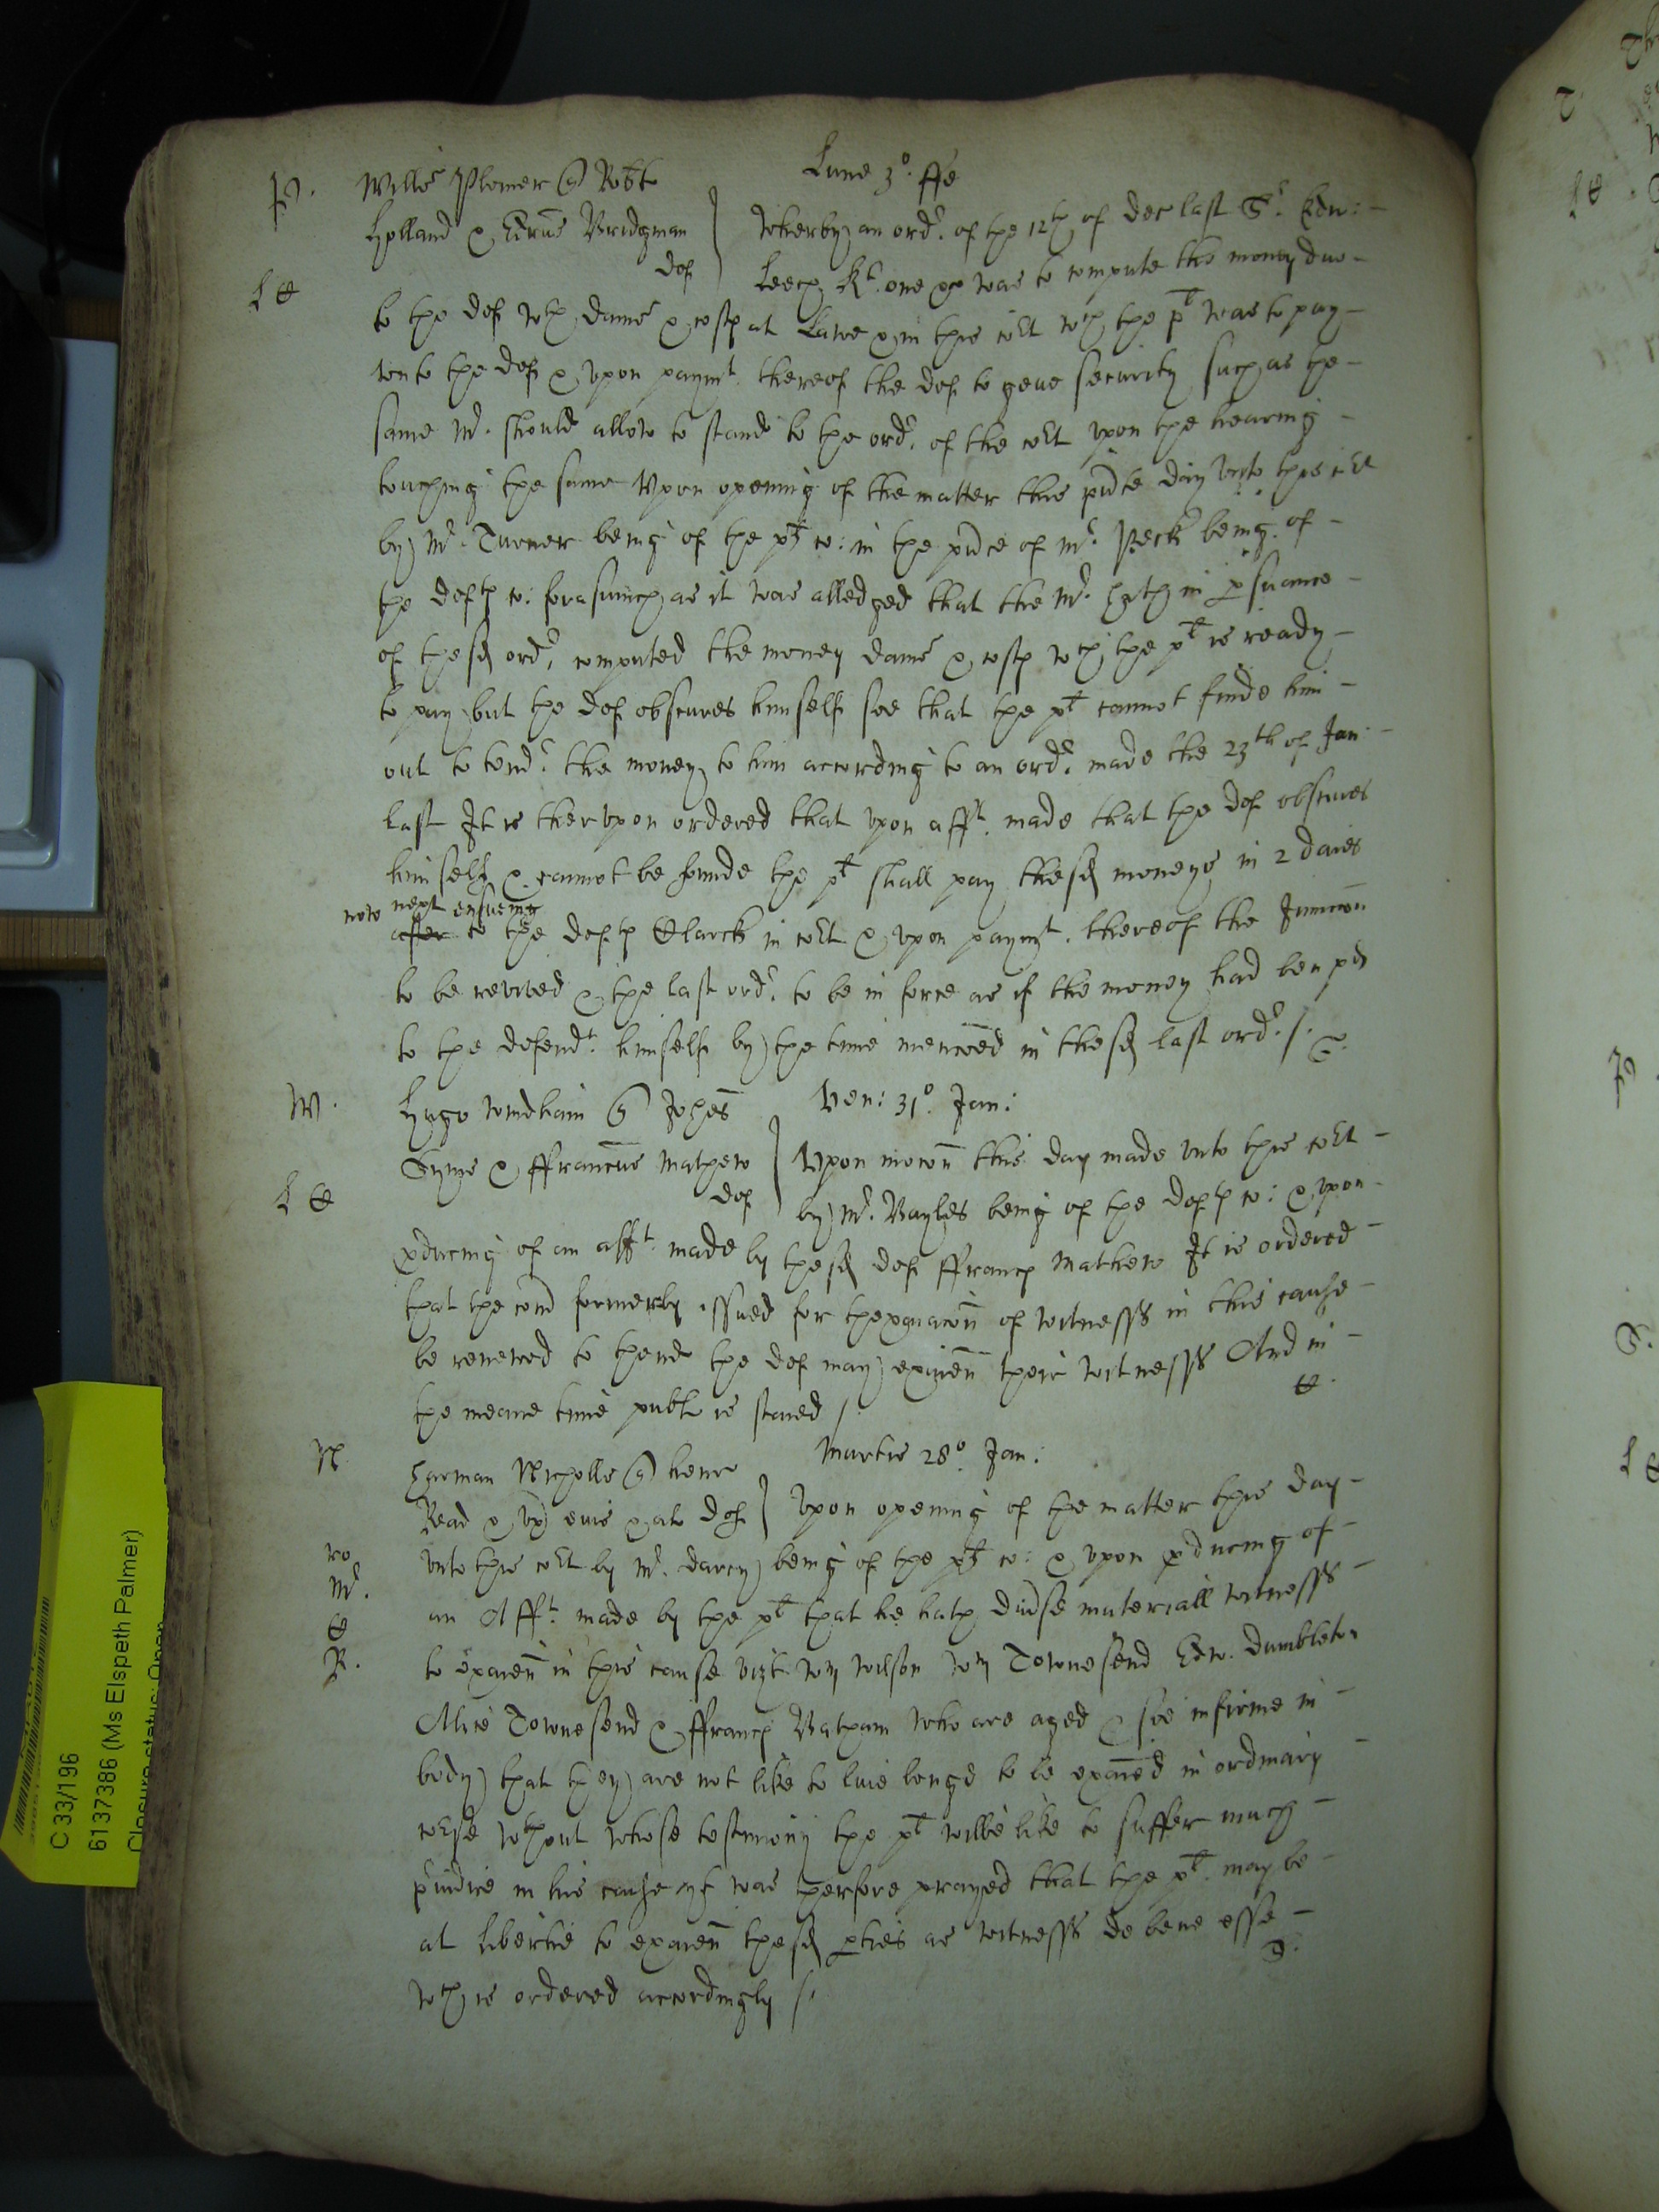 Lune 3°. ffe
P. Willo Plomer q Robto
Holland & Edrus Bridgman def
Wherby an ordr. of the 12th of dec last Sr. Edw:
Leech Kt. one &c was to compute the money due
L
to the def wth dam & costs at Lawe & in this cort wch the pt was to pay
unto the def & upon paymt. thereof the def to geve security such as the
same Mr. should allow to stand to the ordr. of the cort upon the hearing
touching the same Upon opening of the matter this pnte day unto this cort
by Mr. Turner being of the pts co: in the pnce of Mr. Peck being of
the defts co: forasmuch as it was alledged that the Mr. hath in psuance
of the sd ordr. computed the money dam & costs wch the pt is ready
to pay but the def obscures himself soe that the pt cannot finde him
out to tendr. the money to him according to an ordr. made the 23th of Jan
last It is therupon ordered that upon afft. made that the def obscures
himself & cannot be founde the pt shall pay the sd moneys in 2 daies
now next ensueing
after to the defts Clarck in cort & upon paymt. thereof the Junccon
to be revived & the last ordr. to be in force as if the money had ben pd
to the defendt. himself by the time menconed in the sd last ordr. /.
W. Hugo Windham q Johes
Ven: 31°. Jan:
Syms & ffrancus Mathew def
Upon mocon this day made unto this cort
L
by Mr. Bayles being of the defts co: & upon
pducing of an afft. made by the sd def ffrancs Mathew It is ordered
that the com formerly issued for thexaiacon of witnesses in this cause
be renewed to thend the def may exaien their witnesses And in
the meane time publi is staied /.
N. Harman Nicholls q henr
Martis 28°. Jan:
Read & ux eius & al def
Upon opening of the matter this day
ro
unto this cort by Mr. Darcy being of the pts co: & upon pducing of
Mr.
an Afft. made by the pt that he hath diuse materiall witnesses
R.
to exaien in this cause vizt Wm Wilson Wm Townesend Edw. Dumbleton
Alice Townesend & ffrancs Batham who are aged & soe infirme in
body that they are not like to live longe to be exaied in ordinary
corse wthout whose testimony the pt wilbe like to suffer much
piudice in his cause yt was therfore prayed that the pt. may be
at libertie to exaien the sd pties as witnesses de bene esse
wch is ordered accordingly /.
C 33/196
6137386 (Ms Elspeth Palmer)
Closure status: Open